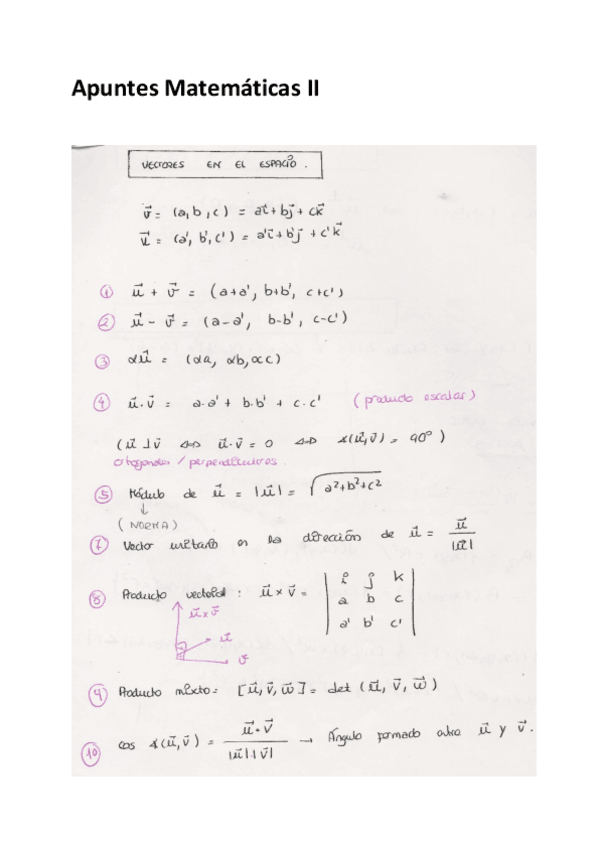 Apuntes Matemáticas II
VECTORES EN EL ESPACIO.
v⃗ = (a,b,c) = ai⃗ + bj⃗ + ck⃗
u⃗ = (a', b', c') = a'i⃗ + b'j⃗ + c'k⃗
① u⃗ + v⃗ = (a+a', b+b', c+c')
② u⃗ - v⃗ = (a-a', b-b', c-c')
③ αu⃗ = (αa, αb, αc)
④ u⃗·v⃗ = a·a' + b·b' + c·c' (producto escalar)
(u⃗ ⊥ v⃗ ⇔ u⃗·v⃗ = 0 ⇔ ∢(u⃗,v⃗) = 90°)
ortogonales / perpendiculares.
⑤ Módulo de u⃗ = |u⃗| = √a²+b²+c²
↓
(NORMA)
⑦ Vector unitario en la dirección de u⃗ = u⃗ / |u⃗|
⑧ Producto vectorial: u⃗ x v⃗ = | i j k |
| a b c |
| a' b' c' |
u⃗ x v⃗
u⃗
v⃗
⑨ Producto mixto = [u⃗, v⃗, w⃗] = det (u⃗, v⃗, w⃗)
⑩ cos ∢(u⃗,v⃗) = u⃗·v⃗ / |u⃗|·|v⃗| → Ángulo formado entre u⃗ y v⃗.